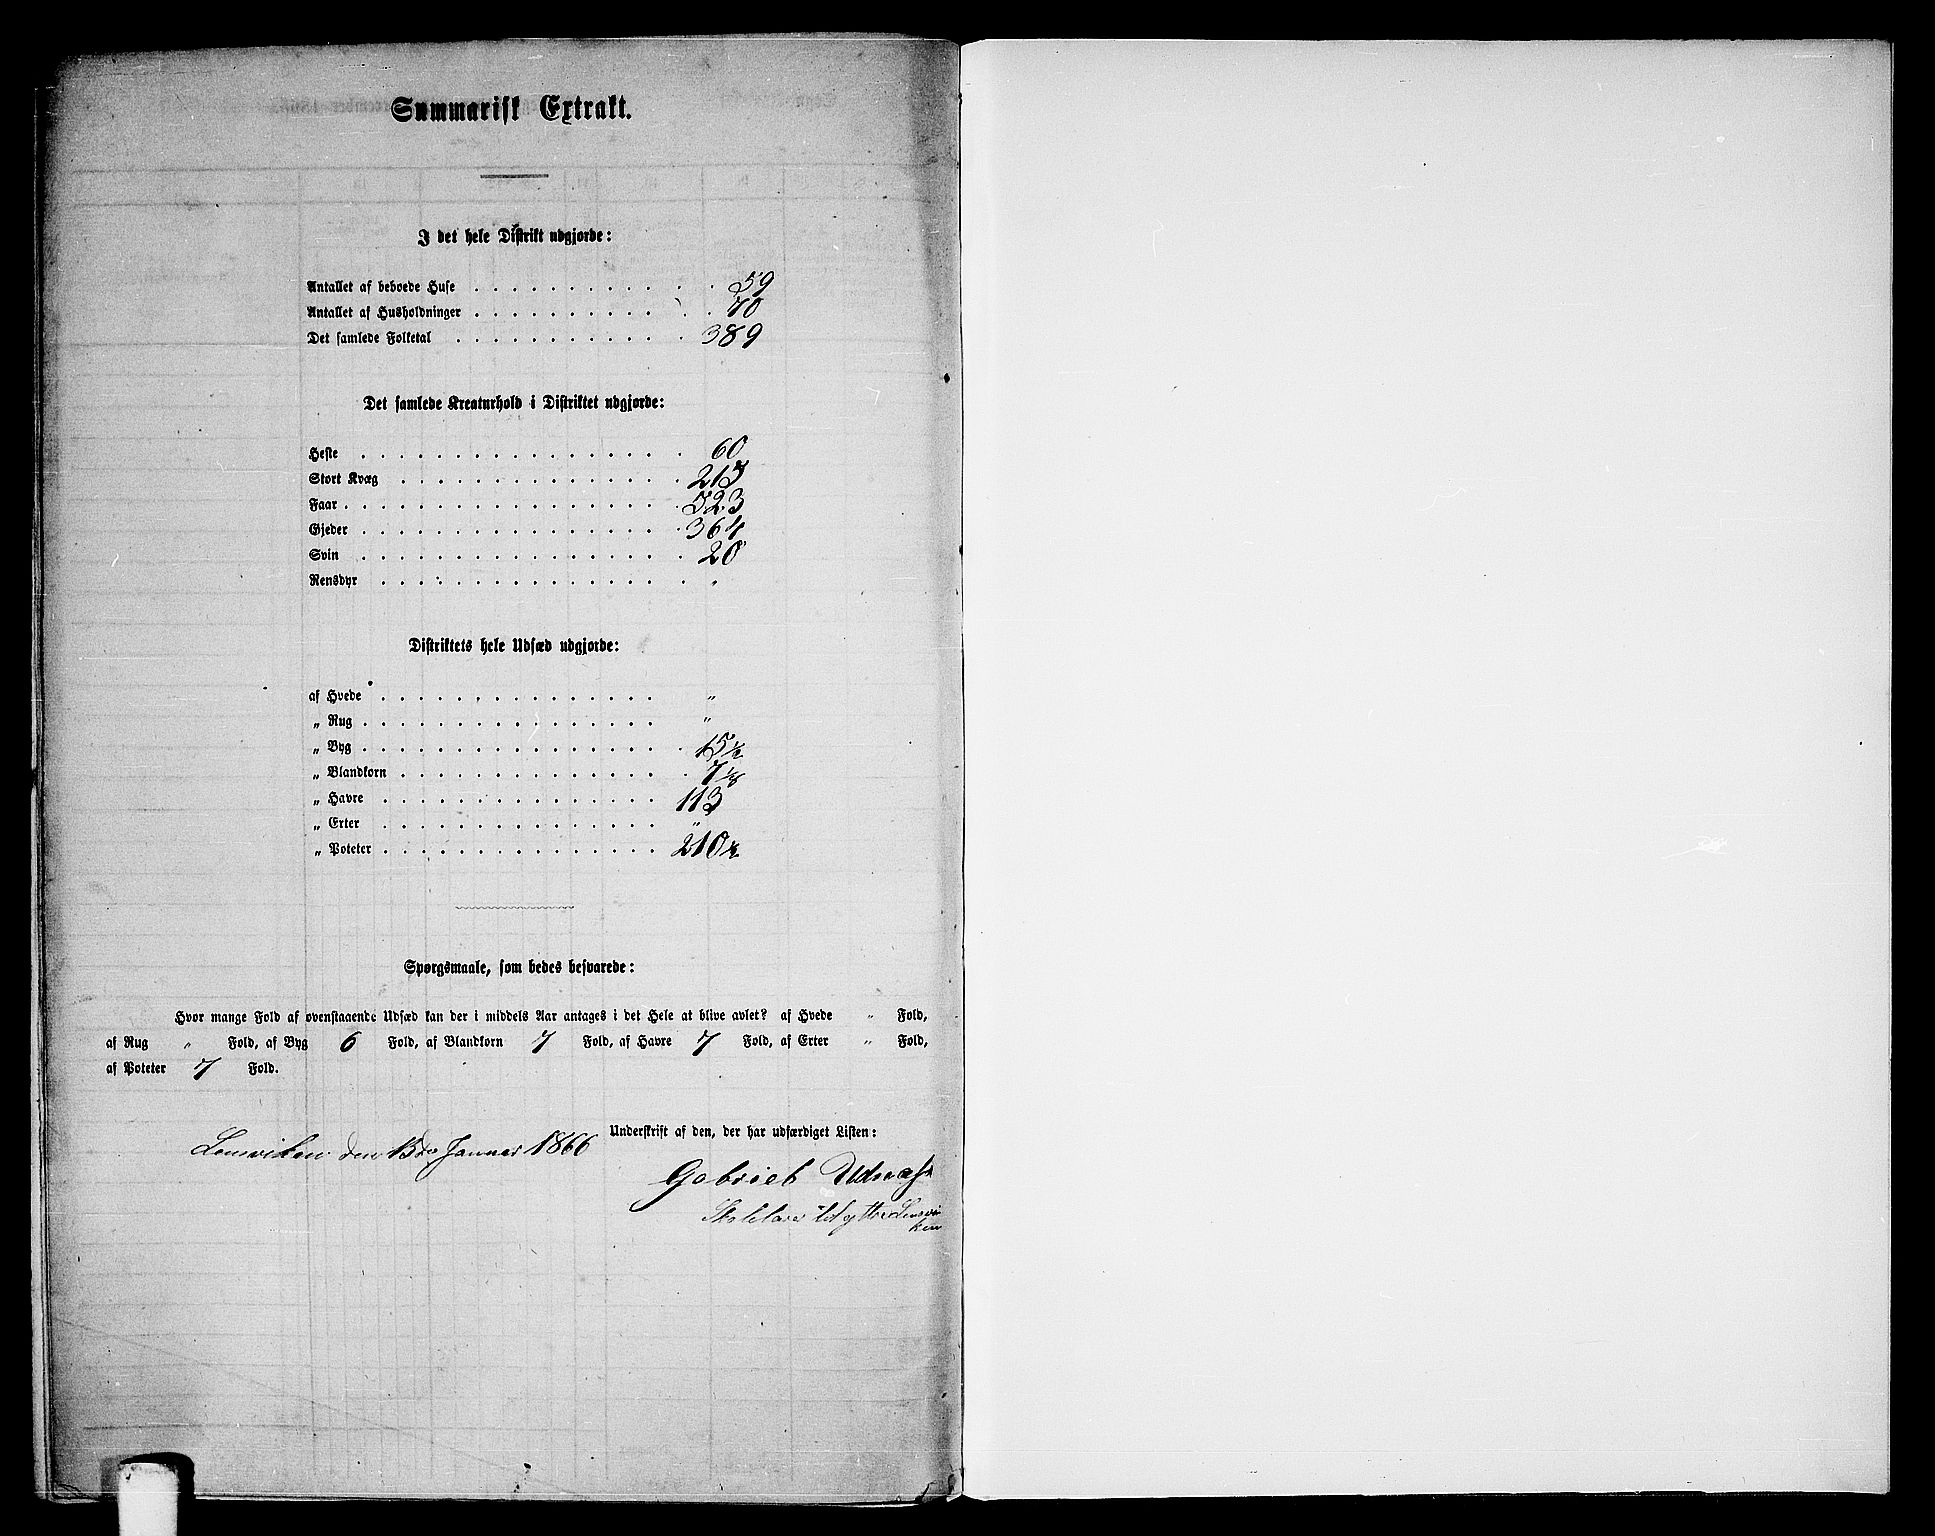 Summarisk Extrakt.
I det hele Distrikt udgjorde:
Antallet af beboede Huse . . . . . . . . . . . . . 59
Antallet af Husholdninger . . . . . . . . . . . . 70
Det samlede Folketal . . . . . . . . . . . . . 389
Det samlede Kreaturhold i Distriktet udgjorde:
Heste . . . . . . . . . . . . . . . . . . 60
Stort Kvæg . . . . . . . . . . . . . . . .
Faar . . . . . . . . . . . . . . . . . . 523
Gjeder . . . . . . . . . . . . . . . . . . 364
Svin . . . . . . . . . . . . . . . . . . 20
Rensdyr . . . . . . . . . . . . . . . . . "
Distriktets hele Udsæd udgjorde:
af Hvede . . . . . . . . . . . . . . . "
„ Rug . . . . . . . . . . . . . . . . "
„ Byg . . . . . . . . . . . . . . . . . . 15 1/2
„ Blandkorn . . . . . . . . . . . . . . . . 7
„ Havre . . . . . . . . . . . . . . . 113
„ Erter . . . . . . . . . . . . . . . "
„ Poteter . . . . . . . . . . . . . . . 210
Spørgsmaale, som bedes besvarede:
Hvor mange Fold af ovenstaaende Udsæd kan der i middels Aar antages i det Hele at blive avlet? af Hvede " Fold,
af Rug " Fold, af Byg 6 Fold, af Blandkorn 7 Fold, af Havre 7 Fold, af Erter " Fold,
af Poteter 7 Fold.
Underskrift af den, der har udfærdiget Listen:
Lensviken den 15de Januar 1866
Gabriel